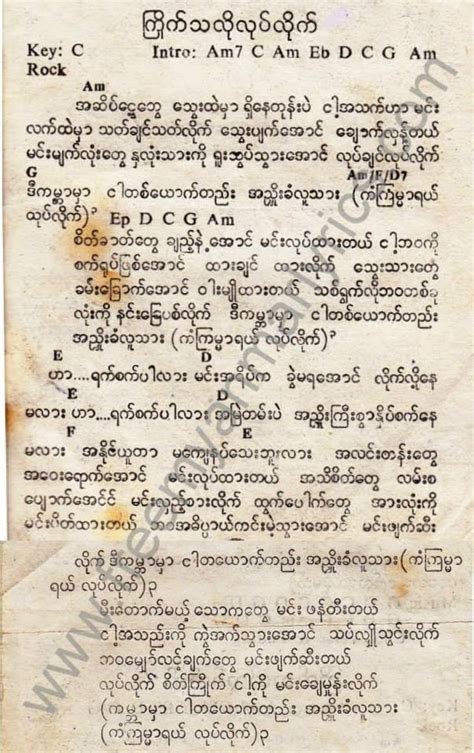 ကြိုက်သလိုလုပ်လိုက်
Key: C Intro: Am7 C Am Eb D C G Am
Rock
Am
အဆိပ်ငွေ့တွေ သွေးထဲမှာ ရှိနေတုန်းပဲ ငါ့အသက်ဟာ မင်း
လက်ထဲမှာ သတ်ချင်သတ်လိုက် သွေးပျက်အောင် ချောက်လှန့်တယ်
မင်းမျက်လုံးတွေ နှလုံးသားကို ရူးသွပ်သွားအောင် လုပ်ချင်လုပ်လိုက်
G Am/F/D7
ဒီကမ္ဘာမှာ ငါတစ်ယောက်တည်း အညှိုးခံလူသား (ကံကြမ္မာရယ်
လုပ်လိုက်)၃
Ep D C G Am
စိတ်ဓာတ်တွေ ချည့်နဲ့အောင် မင်းလုပ်ထားတယ် ငါ့ဘဝကို
စက်ရုပ်ဖြစ်အောင် ထားချင် ထားလိုက် သွေးသားတွေ
ခမ်းခြောက်အောင် ဝါးမျိုထားတယ် သစ်ရွက်လိုဘဝတစ်ခု
လုံးကို နင်းခြေပစ်လိုက် ဒီကမ္ဘာမှာ ငါတစ်ယောက်တည်း
အညှိုးခံလူသား (ကံကြမ္မာရယ် လုပ်လိုက်)၃
E D
ဟာ....ရက်စက်ပါလား မင်းအရိပ်က ခွဲမရအောင် လိုက်လို့နေ
E D
မလား ဟာ....ရက်စက်ပါလား အမြဲတမ်းပဲ အညှိုးကြီးစွာနှိပ်စက်နေ
F E
မလား အနိုင်ယူတာ မကျေနပ်သေးဘူးလား အလင်းတန်းတွေ
အဝေးရောက်အောင် မင်းလုပ်ထားတယ် အသိစိတ်တွေ လမ်းစ
ပျောက်အောင် မင်းလှည့်စားလိုက် ထွက်ပေါက်တွေ အားလုံးကို
မင်းပိတ်ထားတယ် ဘဝအဓိပ္ပာယ်ကင်းမဲ့သွားအောင် မင်းဖျက်ဆီး
လိုက် ဒီကမ္ဘာမှာ ငါတယောက်တည်း အညှိုးခံလူသား(ကံကြမ္မာ
ရယ် လုပ်လိုက်)၃
မီးတောက်မယ့် သောကတွေ မင်း ဖန်တီးတယ်
ငါ့အသည်းကို ကွဲအက်သွားအောင် သပ်လျှိုသွင်းလိုက်
ဘဝမျှော်လင့်ချက်တွေ မင်းဖျက်ဆီးတယ်
လုပ်လိုက် စိတ်ကြိုက် ငါ့ကို မင်းချေမှုန်းလိုက်
(ကမ္ဘာမှာ ငါတစ်ယောက်တည်း အညှိုးခံလူသား
(ကံကြမ္မာရယ် လုပ်လိုက်)၃
www.freemyanmarlyrics.com